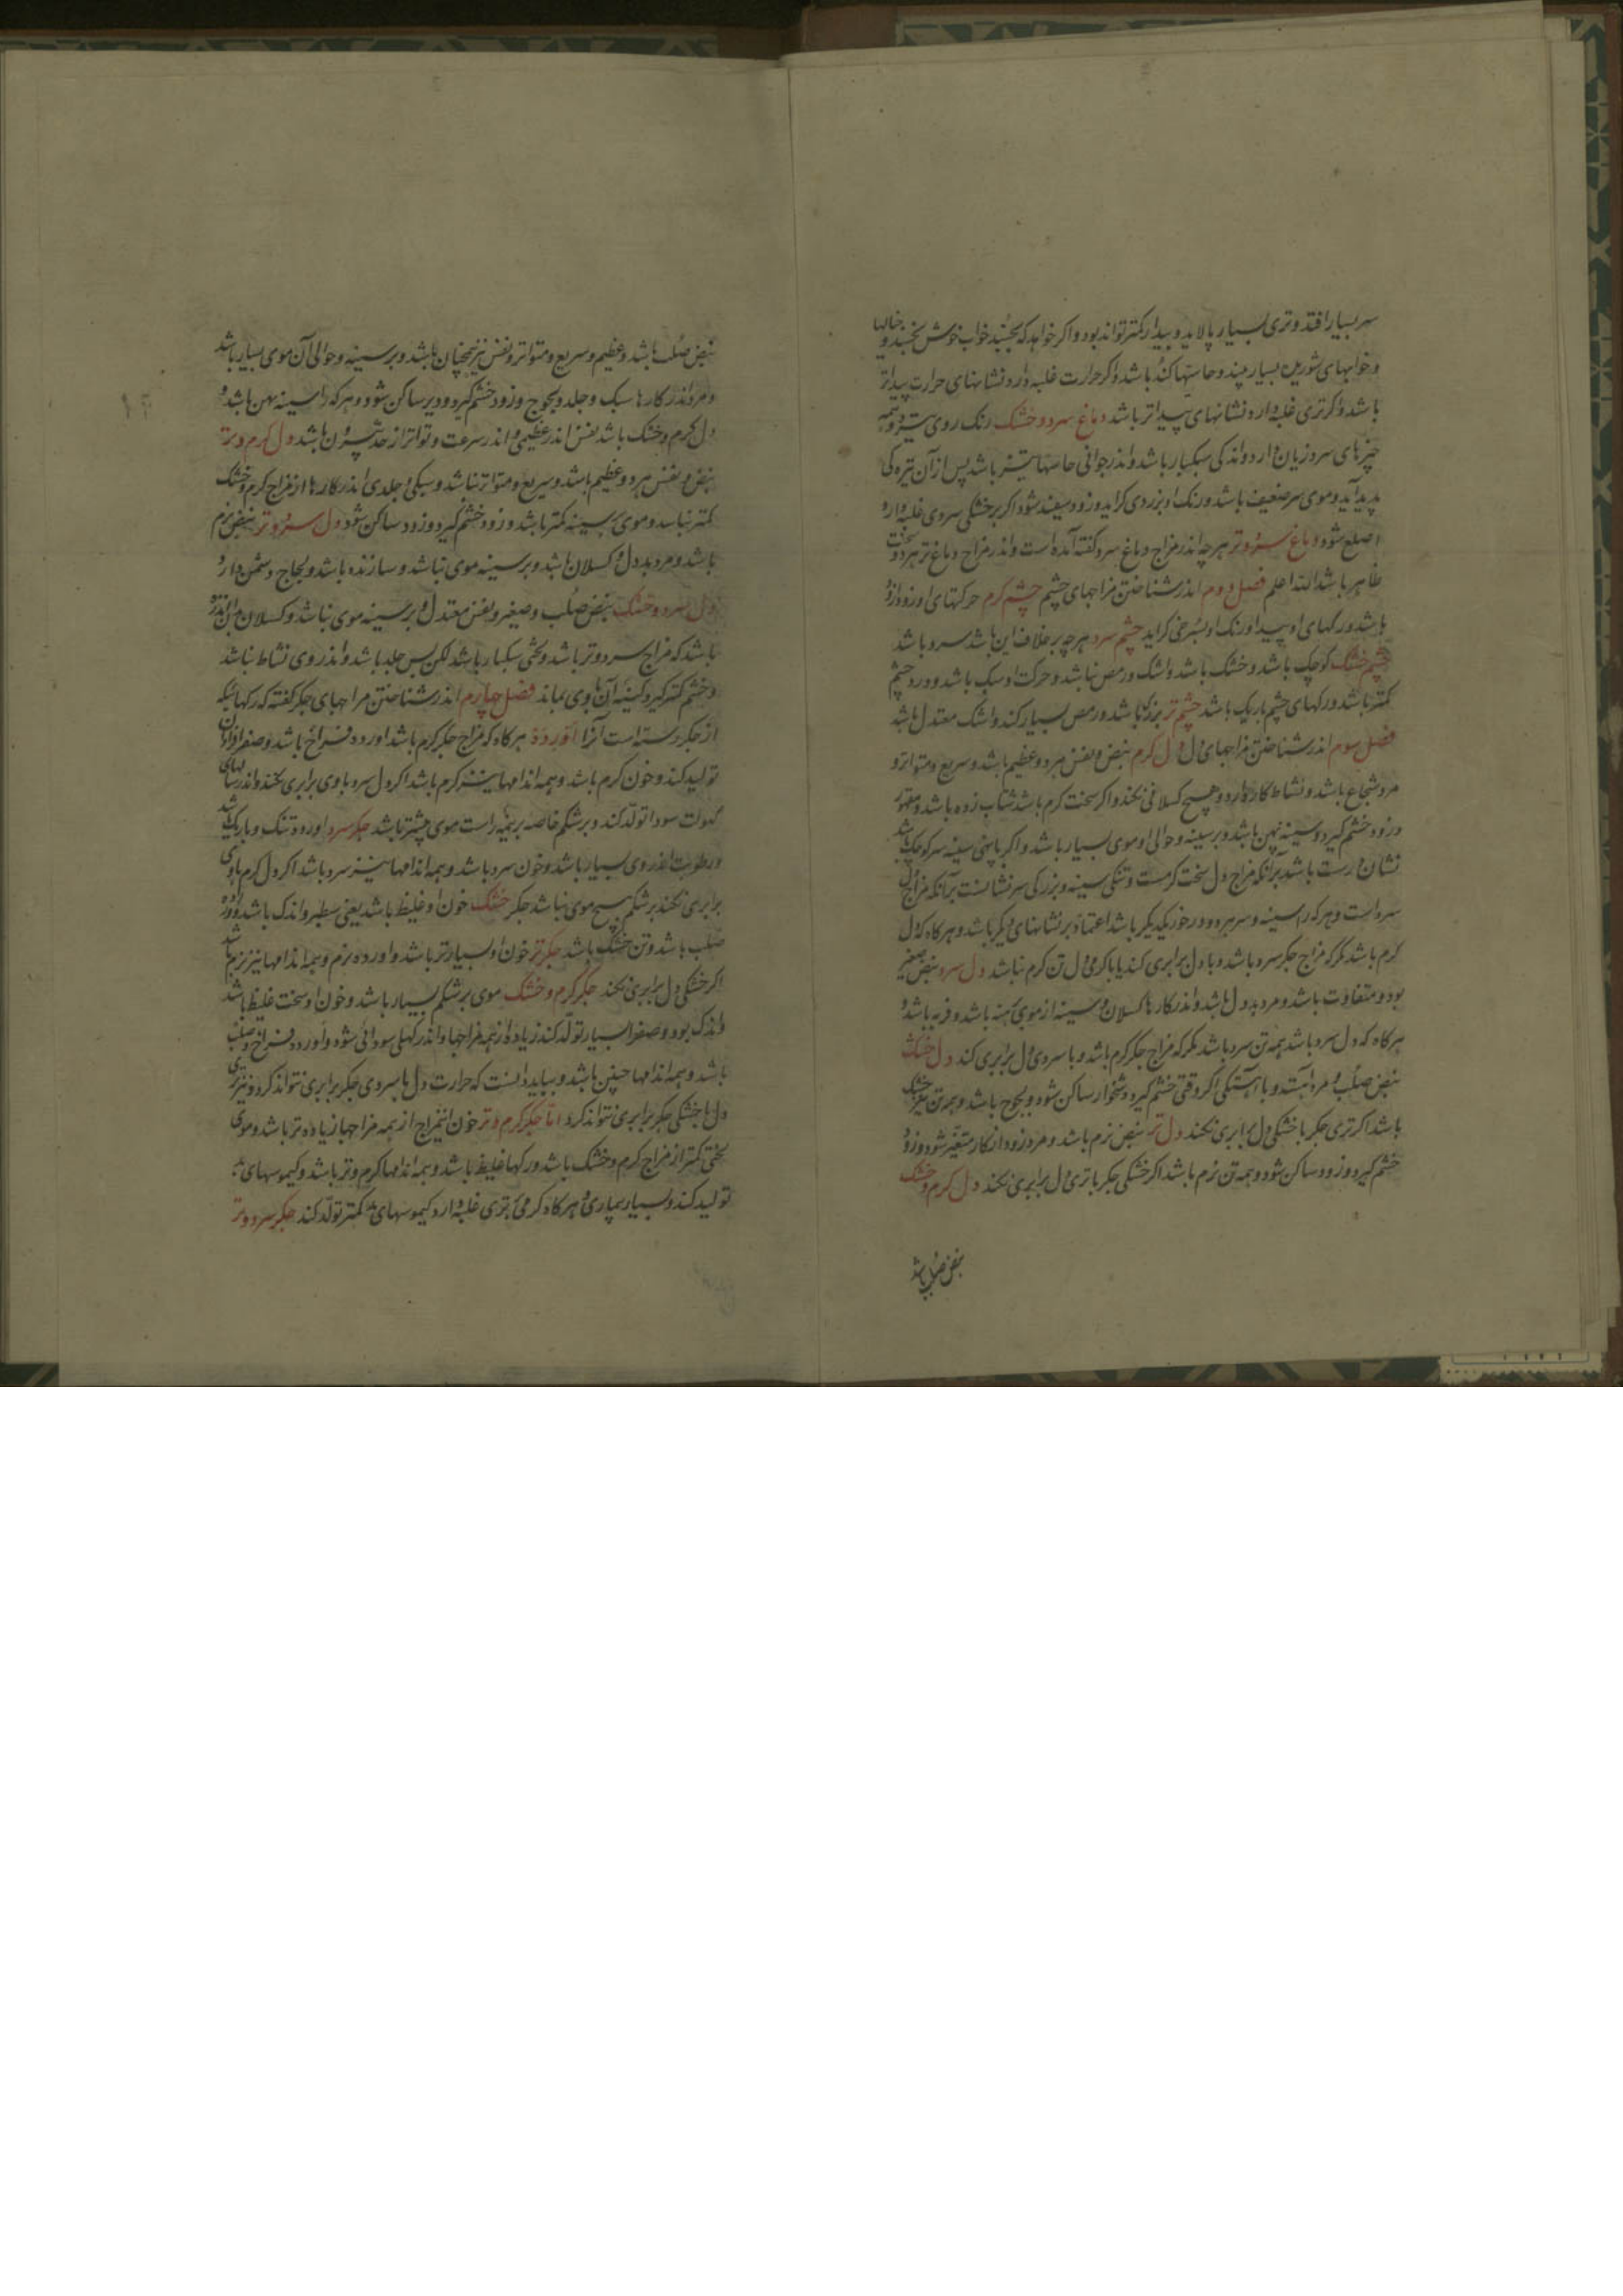 سر بسیار افتد و تری بسیار پالاید و بیدار کمتر تواند بود و اکر خواهد که بخسبد خواب خوش نخسبد و خیالها
و خوابهای شوریده بسیار بیند و حاستها کند باشد و اکر حرارت غلبه دارد نشانهای حرارت پیداتر
باشد و اکر تری غلبه دارد نشانهای پیداتر باشد دماغ سرد و خشک رنک روی
چیزهای سرد زیان دارد و اندکی سبکبار باشد و اندر جوانی حاستها تیز باشد پس از آن تیره کی
پدید آید و موی سر ضعیف باشد و رنک او بزردی کراید و زود سپید شود و اکر بر خشکی سردی غلبه دارد
اصلع شود دماغ سرد و تر هر چه اندر مزاج دماغ سرد کفته آمده است و اندر مزاج دماغ تر هر دو سخت
ظاهر باشد الله اعلم فصل دوم اندر شناختن مزاجهای چشم چشم کرم حرکتهای او زودازود
باشد و رکهای او پیدا و رنک او بسرخی کراید چشم سرد هر چه بر خلاف این باشد سرد باشد
چشم خشک کوچک باشد و خشک باشد و اشک و رمص نباشد و حرکت او سبک باشد و درد چشم
کمتر باشد و رکهای چشم باریک باشد چشم تر بزرک باشد و رمص بسیار کند و اشک معتدل باشد
فصل سوم اندر شناختن مزاجهای دل دل کرم نبض و نفس هر دو عظیم باشد و سریع و متواتر و
مرد شجاع باشد و نشاط کارها دارد و هیچ کسلانی نکند و اکر سخت کرم باشد شتاب زده باشد و متهور
و زود خشم کیرد و سینه پهن باشد و بر سینه و حوالی او موی بسیار باشد و اکر با پهنی سینه سر کوچک باشد
نشان درست باشد بر آنکه مزاج دل سخت کرمست و تنکی سینه و بزرکی سر نشانست بر آنکه مزاج دل
سرد است و هر که را سینه و سر هر دو در خور یکدیکر باشد اعتماد بر نشانهای دیکر باشد و هر کاه که دل
کرم باشد مکر که مزاج جکر سرد باشد و با دل برابری کند یا با کرمی دل تن کرم نباشد دل سرد نبض صغیر
بود و متفاوت باشد و مرد بددل باشد و اندر کارها کسلان و سینه از موی برهنه باشد و فربه باشد و
هر کاه که دل سرد باشد همه تن سرد باشد مکر که مزاج جکر کرم باشد و با سردی دل برابری کند دل خشک
نبض صلب و مرد آهسته و با آهستکی اکر وقتی خشم کیرد دشخوار ساکن شود و لجوج باشد و همه تن نیز خشک
باشد اکر تری جکر با خشکی دل برابری نکند دل تر نبض نرم باشد و مرد زود از کار متغیر شود و زود
خشم کیرد و زود ساکن شود و همه تن نرم باشد اکر خشکی جکر با تری دل برابری نکند دل کرم و خشک
نبض صلب باشد
نبض صلب باشد و عظیم و سریع و متواتر و نفس نیز همچنان باشد و بر سینه و حوالی آن موی بسیار باشد
و مرد اندر کارها سبک و جلد و لجوج و زود خشم کیرد و دیر ساکن شود و هر که را سینه پهن باشد و
دل کرم و خشک باشد نفس اندر عظیمی و اندر سرعت و تواتر از حد بیرون باشد دل کرم و تر
نبض و نفس هر دو عظیم باشد و سریع و متواتر باشد و سبکی و جلدی اندر کارها از مزاج کرم و خشک
کمتر نباشد و موی بر سینه کمتر باشد و زود خشم کیرد و زود ساکن شود دل سرد و تر نبض نرم
باشد و مرد بددل و کسلان باشد و بر سینه موی نباشد و سازنده باشد و لجاج دشمن دارد
دل سرد و خشک نبض صلب و صغیر و نفس معتدل و بر سینه موی نباشد و کسلان
باشد که مزاج سرد و تر باشد و لختی سبکبار باشد لکن بس جلد باشد و اندر وی نشاط نباشد
و خشم کمتر کیرد و کینه آن با وی بماند فصل چهارم اندر شناختن مزاجهای جکر کفته که رکها که
از جکر رسته است آنرا آورده هر کاه که مزاج جکر کرم باشد اورده فراخ باشد و صفرا فراوان
تولید کند و خون کرم باشد و همه اندامها نیز کرم باشد اکر دل سرد با وی برابری نکند و اندر سالهای
کهولت سودا تولد کند و بر شکم خاصه بر نیمه راست موی بیشتر باشد جکر سرد اورده تنک و باریک باشد
و رطوبت اندر وی بسیار باشد و خون سرد باشد و همه اندامها نیز سرد باشد اکر دل کرم با وی
برابری نکند بر شکم هیچ موی نباشد جکر خشک خون او غلیظ باشد یعنی سطبر و اندک باشد و اورده
صلب باشد و تن خشک باشد جکر تر خون او بسیارتر باشد و اورده نرم و همه اندامها نیز نرم باشد
اکر خشکی دل برابری نکند جکر کرم و خشک موی بر شکم بسیار باشد و خون او سخت غلیظ باشد
و اندک بود و صفرا بسیار تولد کند زیاده از همه مزاجها و اندر کهلی سودائی شود و اورده فراخ و صلب
باشد و همه اندامها چنین باشد و بباید دانست که حرارت دل با سردی جکر برابری نتواند کرد و نیز تری
دل با خشکی جکر برابری نتواند کرد اما جکر کرم و تر خون این مزاج از همه مزاجها زیاده تر باشد و موی
لختی کمتر از مزاج کرم و خشک باشد و رکها غلیظ باشد و همه اندامها کرم و تر باشد و کیموسهای بد
تولید کند و بسیار بیماری و هر کاه کرمی بر تری غلبه دارد کیموسهای بد کمتر تولد کند جکر سرد و تر